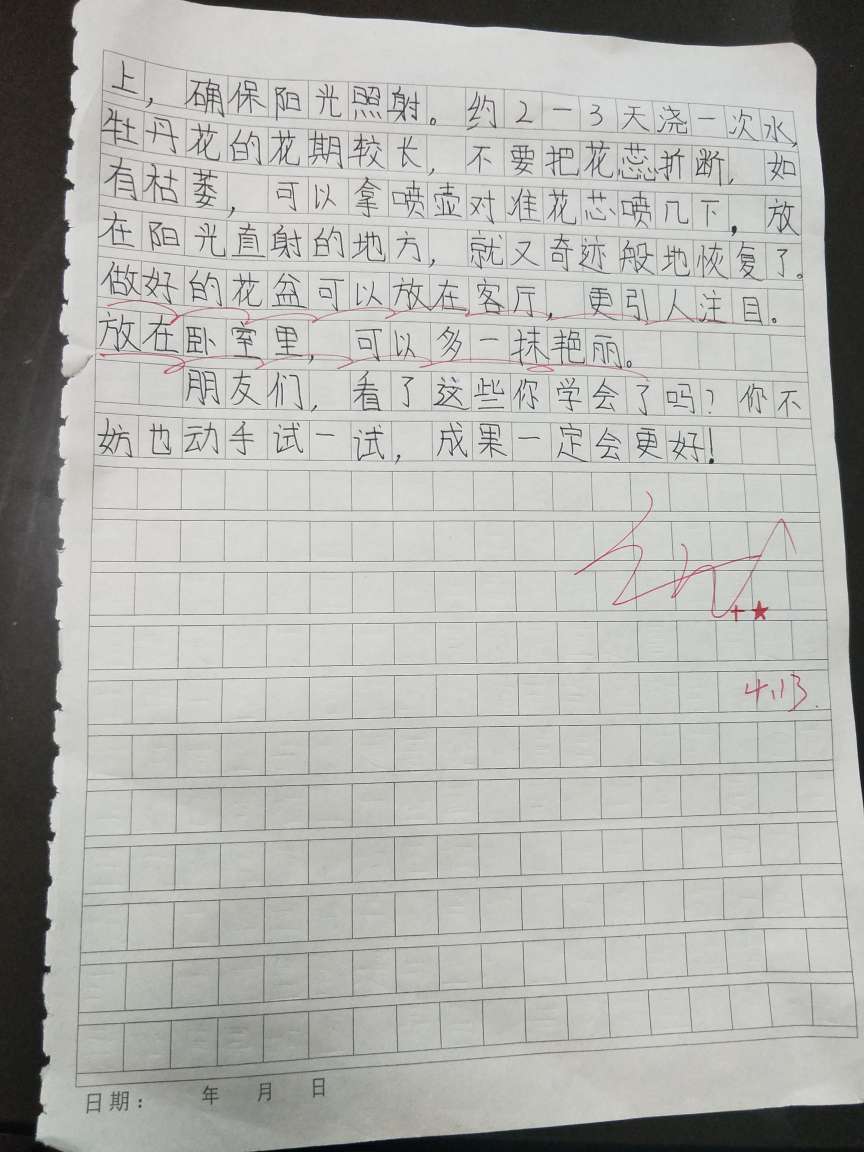 上，确保阳光照射。约2-3天浇一次水，
牡丹花的花期较长，不要把花蕊折断，如
有枯萎，可以拿喷壶对准花芯喷几下，放
在阳光直射的地方，就又奇迹般地恢复了。
做好的花盆可以放在客厅，更引人注目。
放在卧室里，可以多一抹艳丽。
朋友们，看了这些你学会了吗？你不
妨也动手试一试，成果一定会更好！
+★
4.13.
日期： 年 月 日